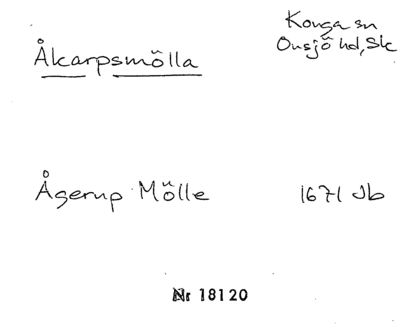 Åkarpsmölla
Konga sn
Onsjö hd, Sk
Ågerup Mölle 1671 Jb
Nr 18120